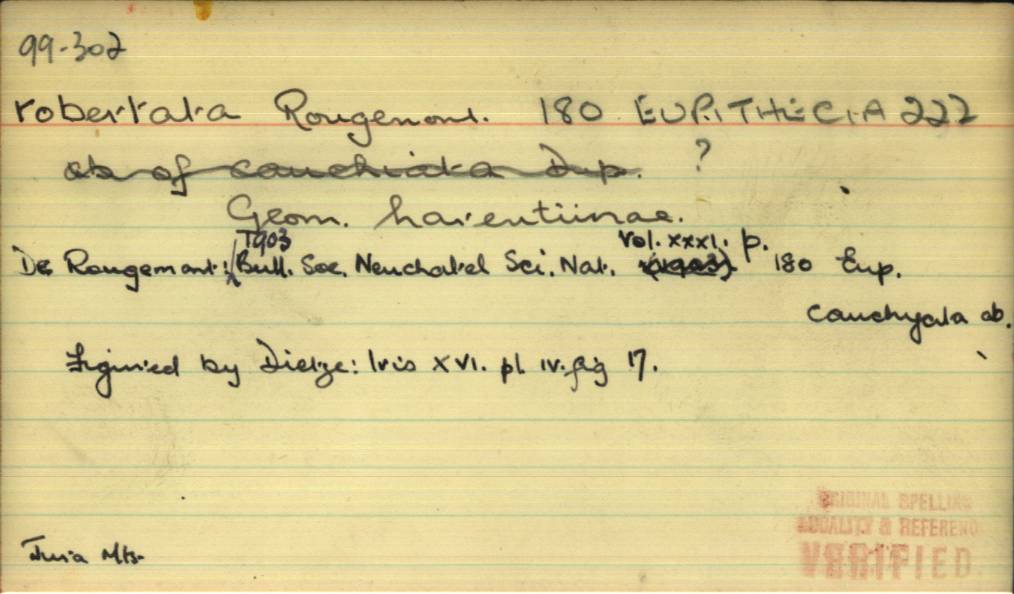 99-302
robertata Rougemont. 180 EUPITHECIA 222
ab of cauchiata Dup. ?
Geom. larentiinae.
1903 Vol. XXXI. p.
De Rougemont: Bull. Soc. Neuchatel Sci. Nat. (1903) 180 Eup.
cauchyata ab.
Figured by Dietze: Iris XVI. pl IV. fig 17.
Jura Mts.
ORIGINAL SPELLING
LOCALITY & REFERENCE
VERIFIED